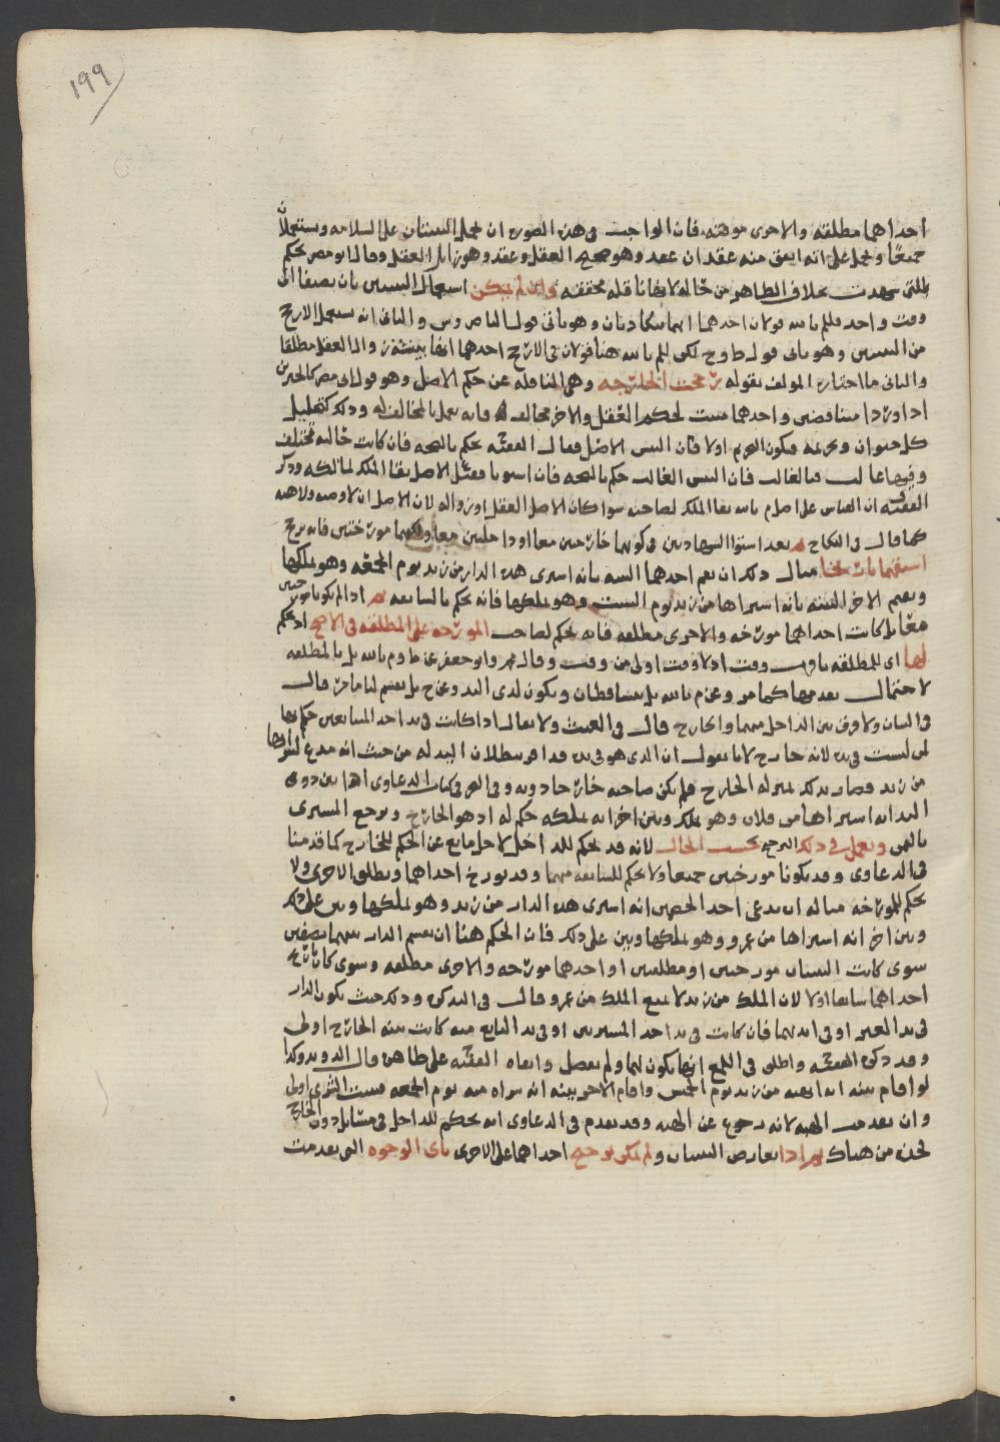 ١٩٩
احداهما مطلقه والاخرى موقته فان الواجب في هذه الصوره ان تحمل البينتان على السلامه وتستعملان
جميعا ويحمل على انه اتفق منه عقدان عقد وهو صحيح العقل وعقد وهو زايل العقل وقال ابو مضر يحكم
للتي شهدت بخلاف الظاهر من حاله لانها ناقله محققه وان لم يمكن استعمال البينتين بان يضيفا الى
وقت واحد فللم بالله قولان احدهما انهما يتكاذبان وهو باني قول الناصر و س والثاني انه يستعمل الارجح
من البينتين وهو باني قول ط و ح لكن للم بالله هنا قولان في الارجح احدهما انها بينة زوال العقل مطلقا
والثاني ما اختاره المولف بقوله رجحت الخارجه وهي الناقله عن حكم الاصل وهو قول ابي مضر كالخبرين
اذا وردا متناقضين واحدهما مثبت لحكم العقل والاخر مخالف له فانه يعمل بالمخالف له وذلك كتحليل
كل حيوان وتحريمه فيكون التحريم اولا فان التبس الاصل فقال الفقيه يحكم بالصحه فان كانت حالته تختلف
وفيها غالب فبالغالب فان التبس الغالب حكم بالصحه فان استويا فقيل الاصل بقا الملك لمالكه وذكر
الفقيه ف ان القياس على اصل م بالله بقا الملك لصاحبه سوا كان الاصل العقل او زواله لان الاصل ان لا وصيه ولا هبه
كما قال في النكاح ثم بعد استوا الشهادتين في كونهما خارجتين معا او داخلتين معا وكونهما مورختين فانه يرجح
اسبقهما تاريخا مثال ذلك ان يقيم احدهما البينه بانه اشترى هذه الدار من زيد يوم الجمعه وهو يملكها
ويقيم الاخر البينه بانه اشتراها من زيد يوم السبت وهو يملكها فانه يحكم بالسابقه ثم اذا لم يكونا مورختين
معا بل كانت احداهما مورخه والاخرى مطلقه فانه يحكم لصاحب المورخه على المطلقه في الاصح اذ يحكم
لها اي للمطلقه باقرب وقت اولا وقت اولى من وقت وقال محمد وابو جعفر عن ط و م بالله بل بالمطلقه
لاحتمال تقدمها كما مر وعن م بالله بل يتساقطان ويكون لذي اليد وعن ح بل يقسم لنا ما مر قال
في البيان ولا فرق بين الداخل منهما والخارج قال في الغيث ولا يقال اذا كانت في يد احد المتبايعين حكم بها
لمن ليست في يده لانه خارج لانا نقول ان الذي هو في يده قد اقر ببطلان اليد له من حيث انه مدع لشرائها
من زيد فصار بذلك بمنزله الخارج فلم يكن صاحبه خارجا دونه وفي اللمع في كتاب الدعاوى اذا بين ذو
اليد انه اشتراها من فلان وهو يملك وبين اخر انه يملكه حكم له اذ هو الخارج ويرجع المشتري
بالثمن ويعمل في ذلك الترجيح بحسب الحال لانه قد يحكم للداخل لاجل مانع عن الحكم للخارج كما قدمنا
في الدعاوى وقد يكونا مورختين جميعا ولا يحكم للسابقه منهما وقد تورخ احداهما وتطلق الاخرى ولا
يحكم للمورخه مثاله ان يدعي احد الخصمين انه اشترى هذه الدار من زيد وهو يملكها وبين على ذلك
وبين اخر انه اشتراها من عمرو وهو يملكها وبين على ذلك فان الحكم هنا ان تقسم الدار بينهما نصفين
سوى كانت البينتان مورختين او مطلقتين او احدهما مورخه والاخرى مطلقه وسوى كان تاريخ
احداهما سابقا اولا لان الملك من زيد لا يمنع الملك من عمرو قال في التذكره وذلك حيث تكون الدار
في يد الغير او في ايديهما فان كانت في يد احد المشتريين او في يد البايع منه كانت بينه الخارج اولى
وقد ذكره الفقيه واطلق في اللمع انها تكون لهما ولم يفصل وابقاه الفقيه على ظاهره قال الدواري وكذا
لو اقام بينه انه اتهبه من زيد يوم الخميس واقام الاخر بينه انه شراه منه يوم الجمعه فبينه الشرى اولى
وان تقدمت الهبه لانه رجوع عن الهبه وقد تقدم في الدعاوى انه يحكم للداخل في مسايل دون الخارج
فخذه من هناك ثم اذا تعارض البينتان ولم يمكن ترجيح احداهما على الاخرى باي الوجوه التي تقدمت